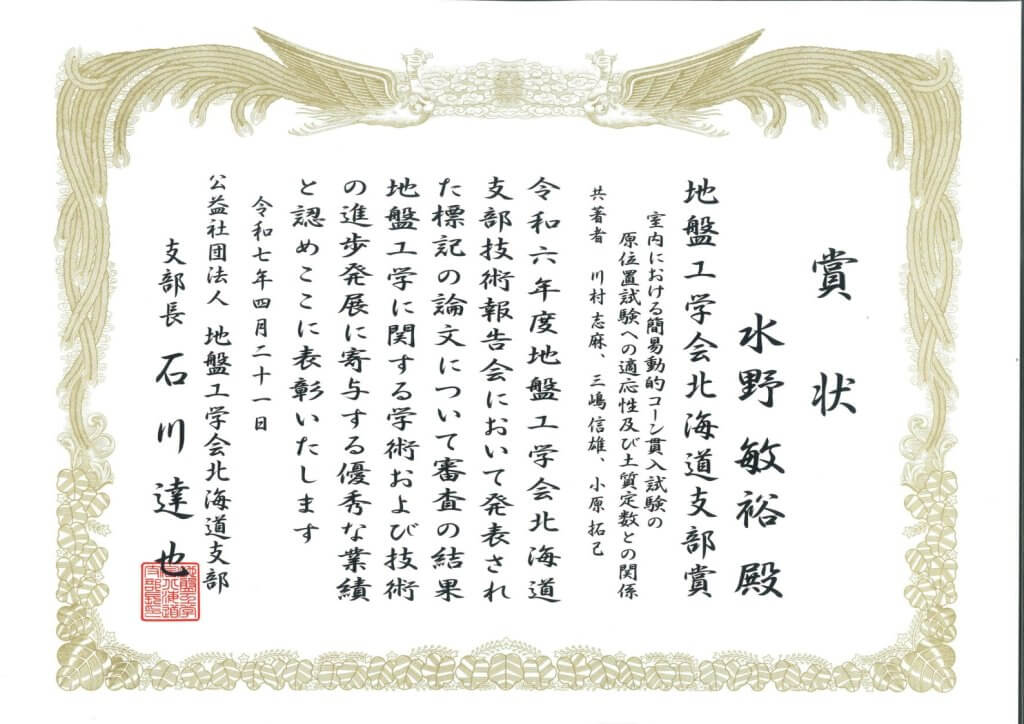 賞状
水野敏裕殿
地盤工学会北海道支部賞
室内における簡易動的コーン貫入試験の
原位置試験への適応性及び土質定数との関係
共著者 川村志麻、三嶋信雄、小原拓己
令和六年度地盤工学会北海道
支部技術報告会において発表され
た標記の論文について審査の結果
地盤工学に関する学術および技術
の進歩発展に寄与する優秀な業績
と認めここに表彰いたします
令和七年四月二十一日
公益社団法人 地盤工学会北海道支部
支部長 石川達也